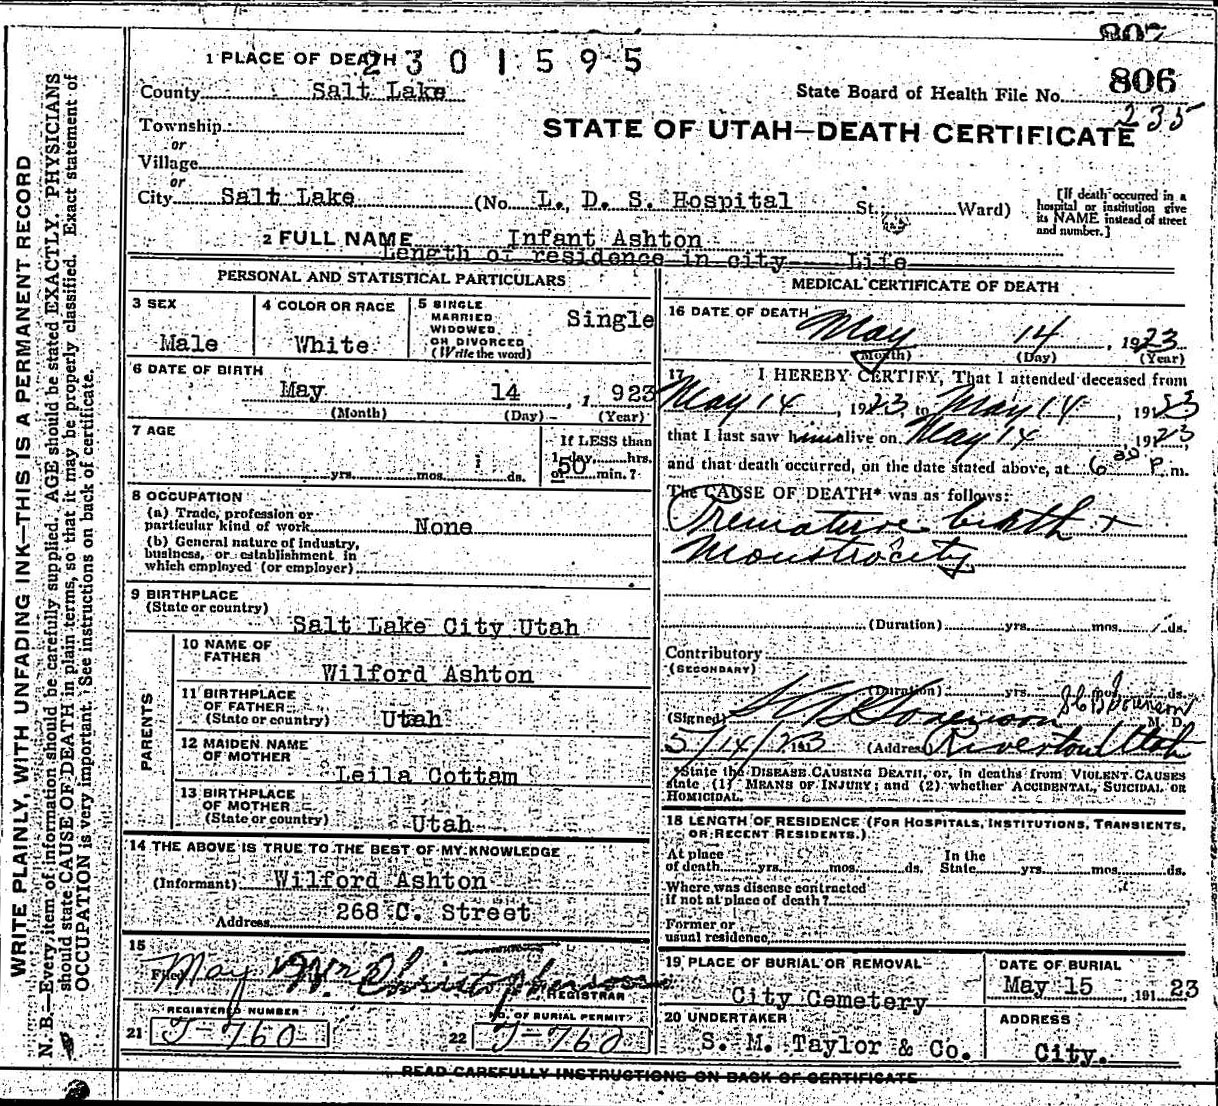 807
1 PLACE OF DEATH 2301595
806
County Salt Lake
State Board of Health File No.
235
Township
or
STATE OF UTAH—DEATH CERTIFICATE
Village
or
City Salt Lake (No. L. D. S. Hospital St. Ward)
[If death occurred in a
hospital or institution give
its NAME instead of street
and number.]
2 FULL NAME Infant Ashton
Length of residence in city---- Life
PERSONAL AND STATISTICAL PARTICULARS
3 SEX
Male
4 COLOR OR RACE
White
5 SINGLE
MARRIED
WIDOWED
OR DIVORCED
(Write the word)
Single
6 DATE OF BIRTH
May 14 , 1 923
(Month) (Day) (Year)
7 AGE
yrs. mos. ds.
If LESS than
1 day, hrs.
or 50 min.?
8 OCCUPATION
(a) Trade, profession or
particular kind of work None
(b) General nature of industry,
business, or establishment in
which employed (or employer)
9 BIRTHPLACE
(State or country)
Salt Lake City Utah
PARENTS
10 NAME OF
FATHER
Wilford Ashton
11 BIRTHPLACE
OF FATHER
(State or country) Utah
12 MAIDEN NAME
OF MOTHER
Leila Cottam
13 BIRTHPLACE
OF MOTHER
(State or country) Utah
14 THE ABOVE IS TRUE TO THE BEST OF MY KNOWLEDGE
(Informant) Wilford Ashton
Address 268 C. Street
15
Filed May Wm Christophersson
REGISTRAR
REGISTERED NUMBER
21 J-760
NO. OF BURIAL PERMIT
22 J-760
MEDICAL CERTIFICATE OF DEATH
16 DATE OF DEATH
May 14 , 1923
(Month) (Day) (Year)
17 I HEREBY CERTIFY, That I attended deceased from
May 14 , 1923 to May 14 , 1923
that I last saw him alive on May 14 , 1923
and that death occurred, on the date stated above, at 6 P. m.
The CAUSE OF DEATH* was as follows:
Premature birth +
Monstrocity
(Duration) yrs. mos. ds.
Contributory
(SECONDARY)
(Duration) yrs. mos. ds.
(Signed) Sorenson M. D.
5/14/1923 (Address) Riverton Utah
*State the DISEASE CAUSING DEATH, or, in deaths from VIOLENT CAUSES
state (1) MEANS OF INJURY; and (2) whether ACCIDENTAL, SUICIDAL OR
HOMICIDAL.
18 LENGTH OF RESIDENCE (FOR HOSPITALS, INSTITUTIONS, TRANSIENTS,
OR RECENT RESIDENTS.)
At place
of death yrs. mos. ds.
In the
State yrs. mos. ds.
Where was disease contracted
if not at place of death?
Former or
usual residence
19 PLACE OF BURIAL OR REMOVAL
City Cemetery
DATE OF BURIAL
May 15 , 191 23
20 UNDERTAKER
S. M. Taylor & Co.
ADDRESS
City.
READ CAREFULLY INSTRUCTIONS ON BACK OF CERTIFICATE
WRITE PLAINLY, WITH UNFADING INK—THIS IS A PERMANENT RECORD
N. B.—Every item of information should be carefully supplied. AGE should be stated EXACTLY. PHYSICIANS
should state CAUSE OF DEATH in plain terms, so that it may be properly classified. Exact statement of
OCCUPATION is very important. See instructions on back of certificate.